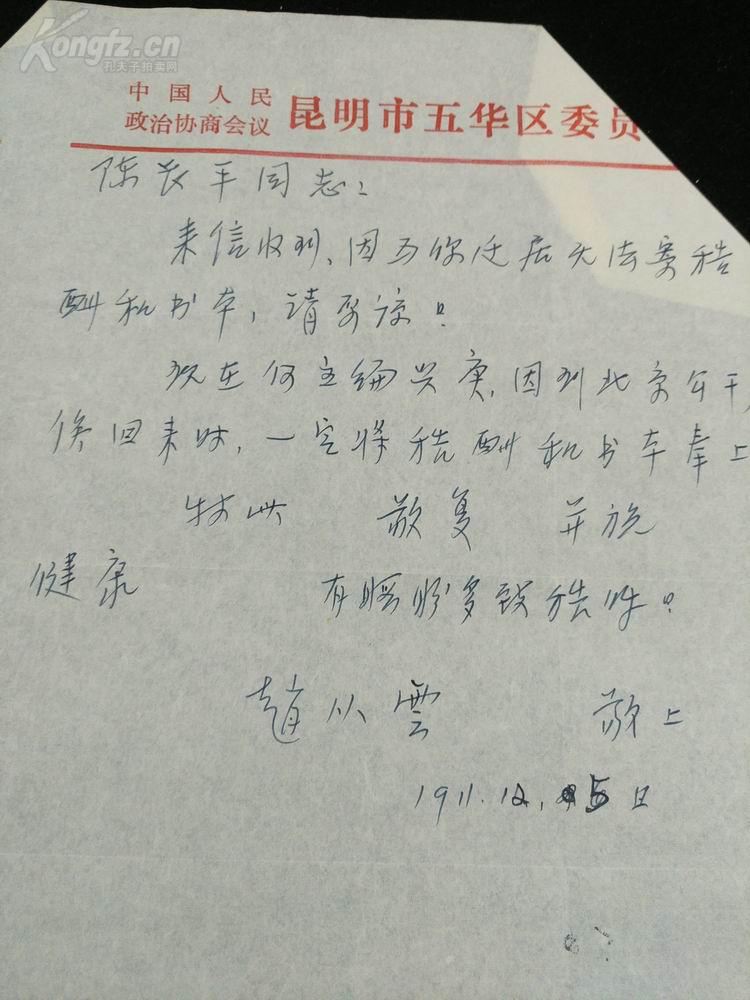 Kongfz.cn
孔夫子拍卖网
中国人民
政治协商会议 昆明市五华区委员
陈长平同志：
来信收到、因为你迁居无法寄稿
酬和书本，请原谅！
现在何主编兴庚，因到北京公干，
候回来时，一定将稿酬和书本奉上
特此 敬复 并祝
健康 有暇盼多致稿件！
赵从雲 敬上
1911.12.5日